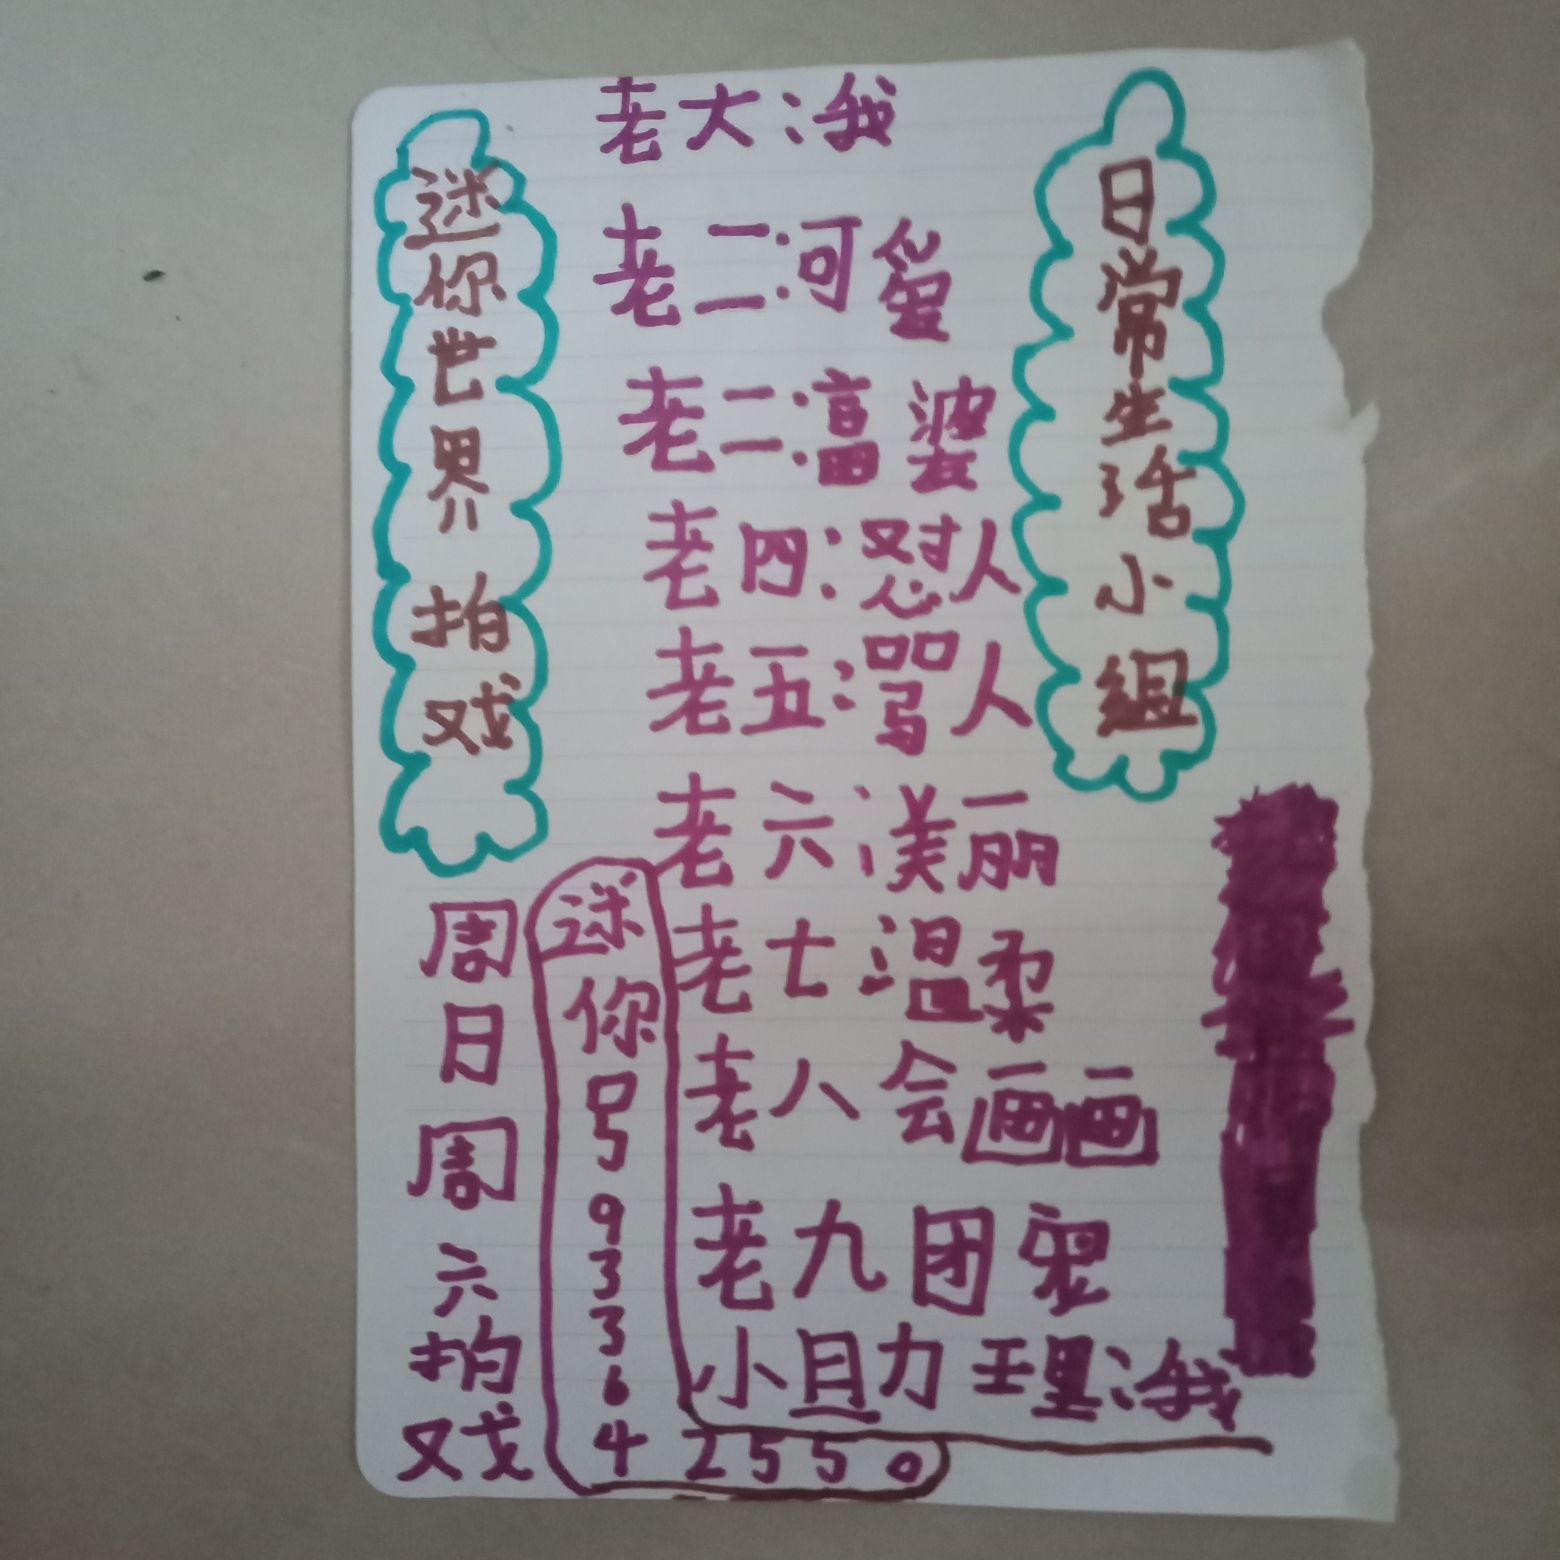 迷你世界拍戏
老大:我
老二:可爱
老二:富婆
老四:怼人
老五:骂人
老六:漂丽
老七温柔
老八会画画
老九团宠
小助理:我
日常生活小组
迷你号933642550
周日周六拍戏